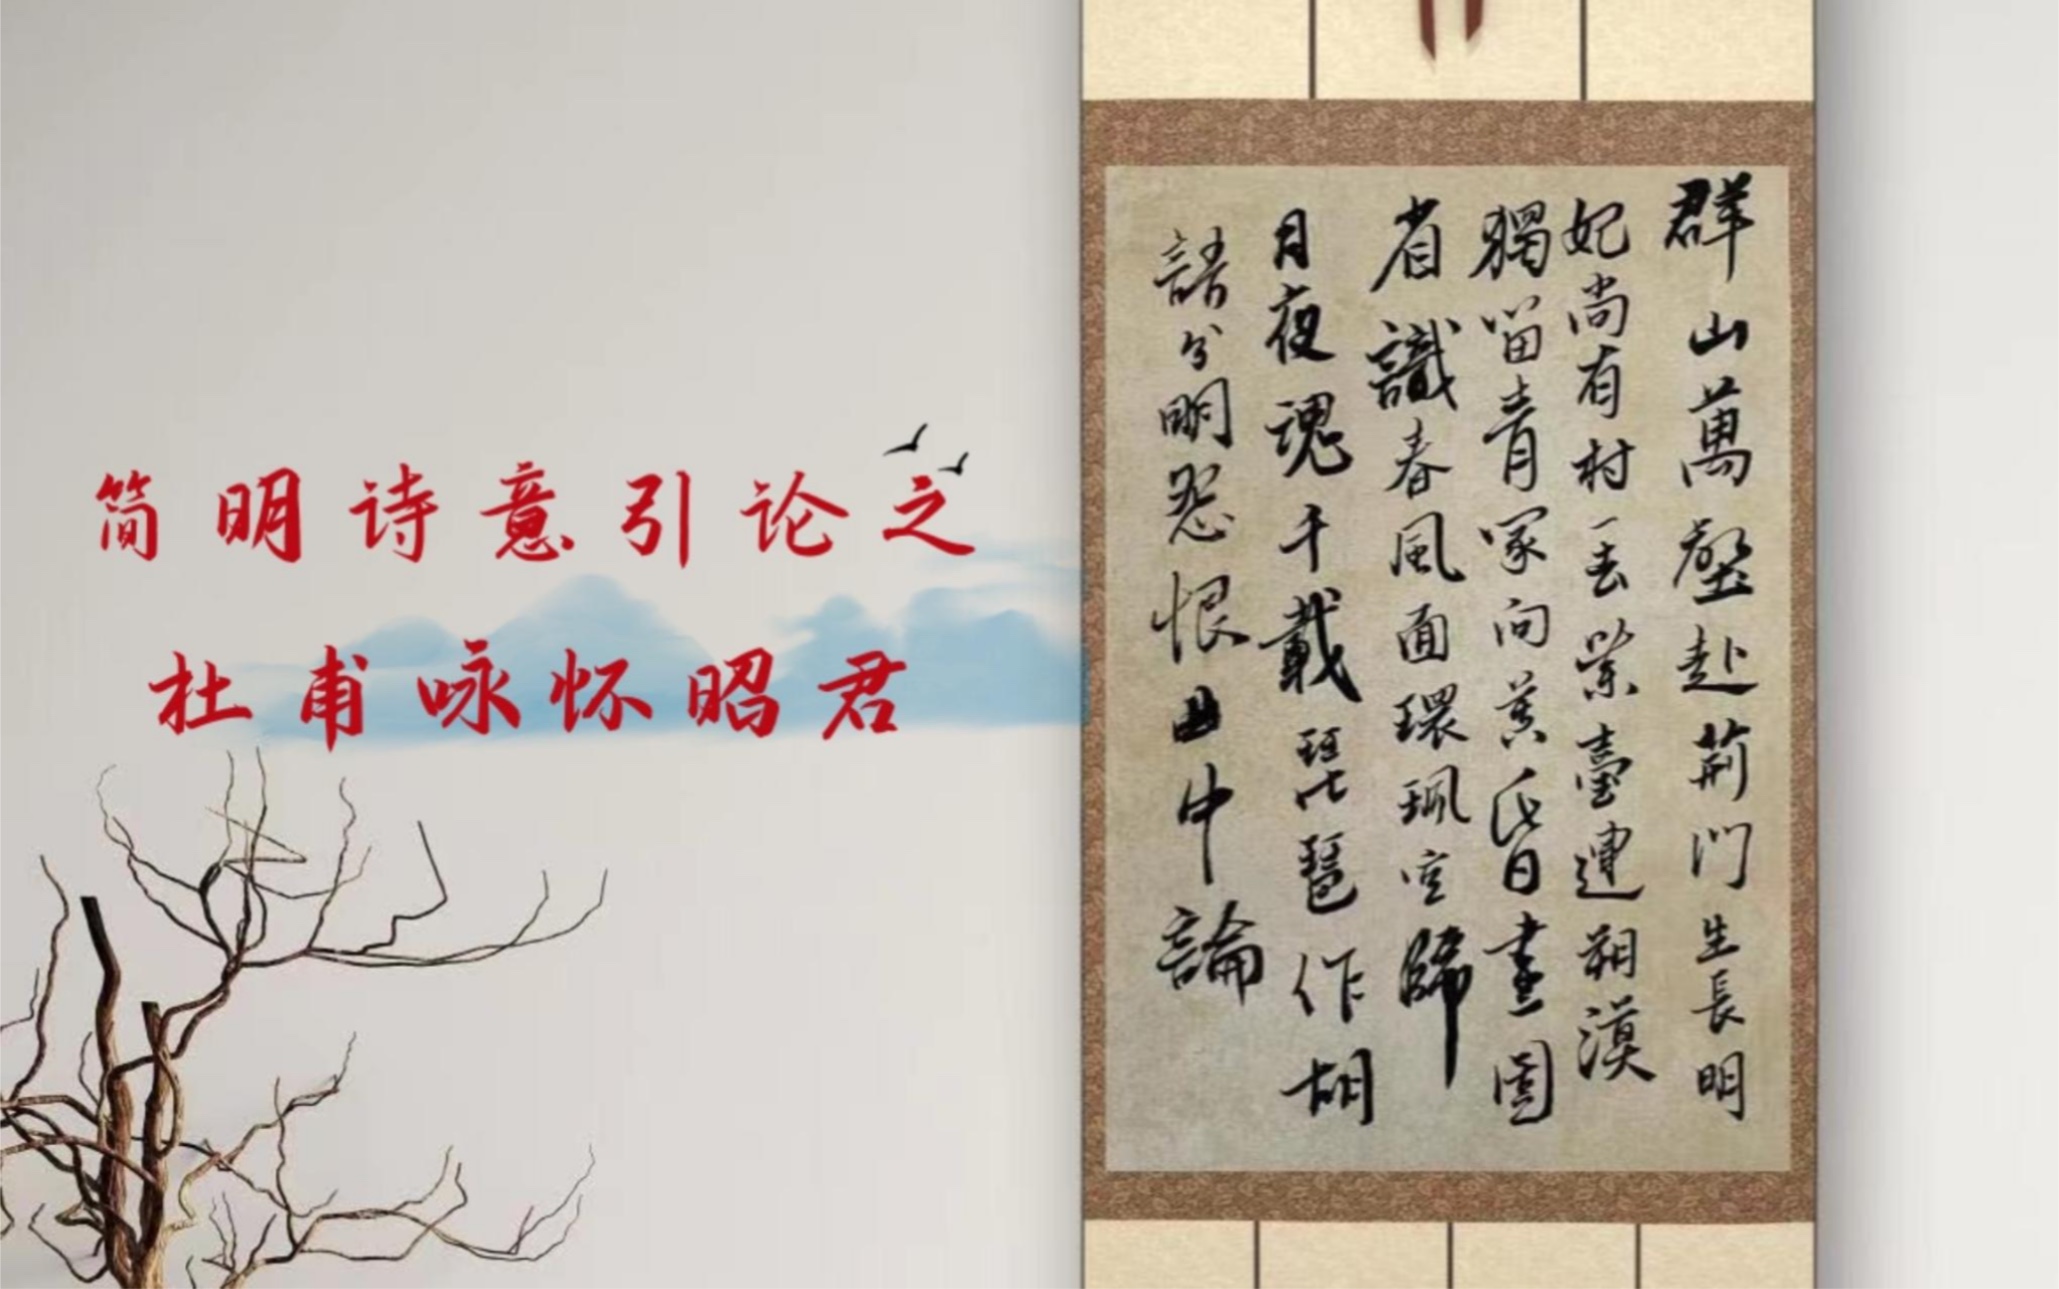 简明诗意引论之
杜甫咏怀昭君
群山萬壑赴荊門生長明
妃尚有村一去紫臺連朔漠
獨留青冢向黃昏畫圖
省識春風面環珮空歸
月夜魂千載琵琶作胡
語分明怨恨曲中論